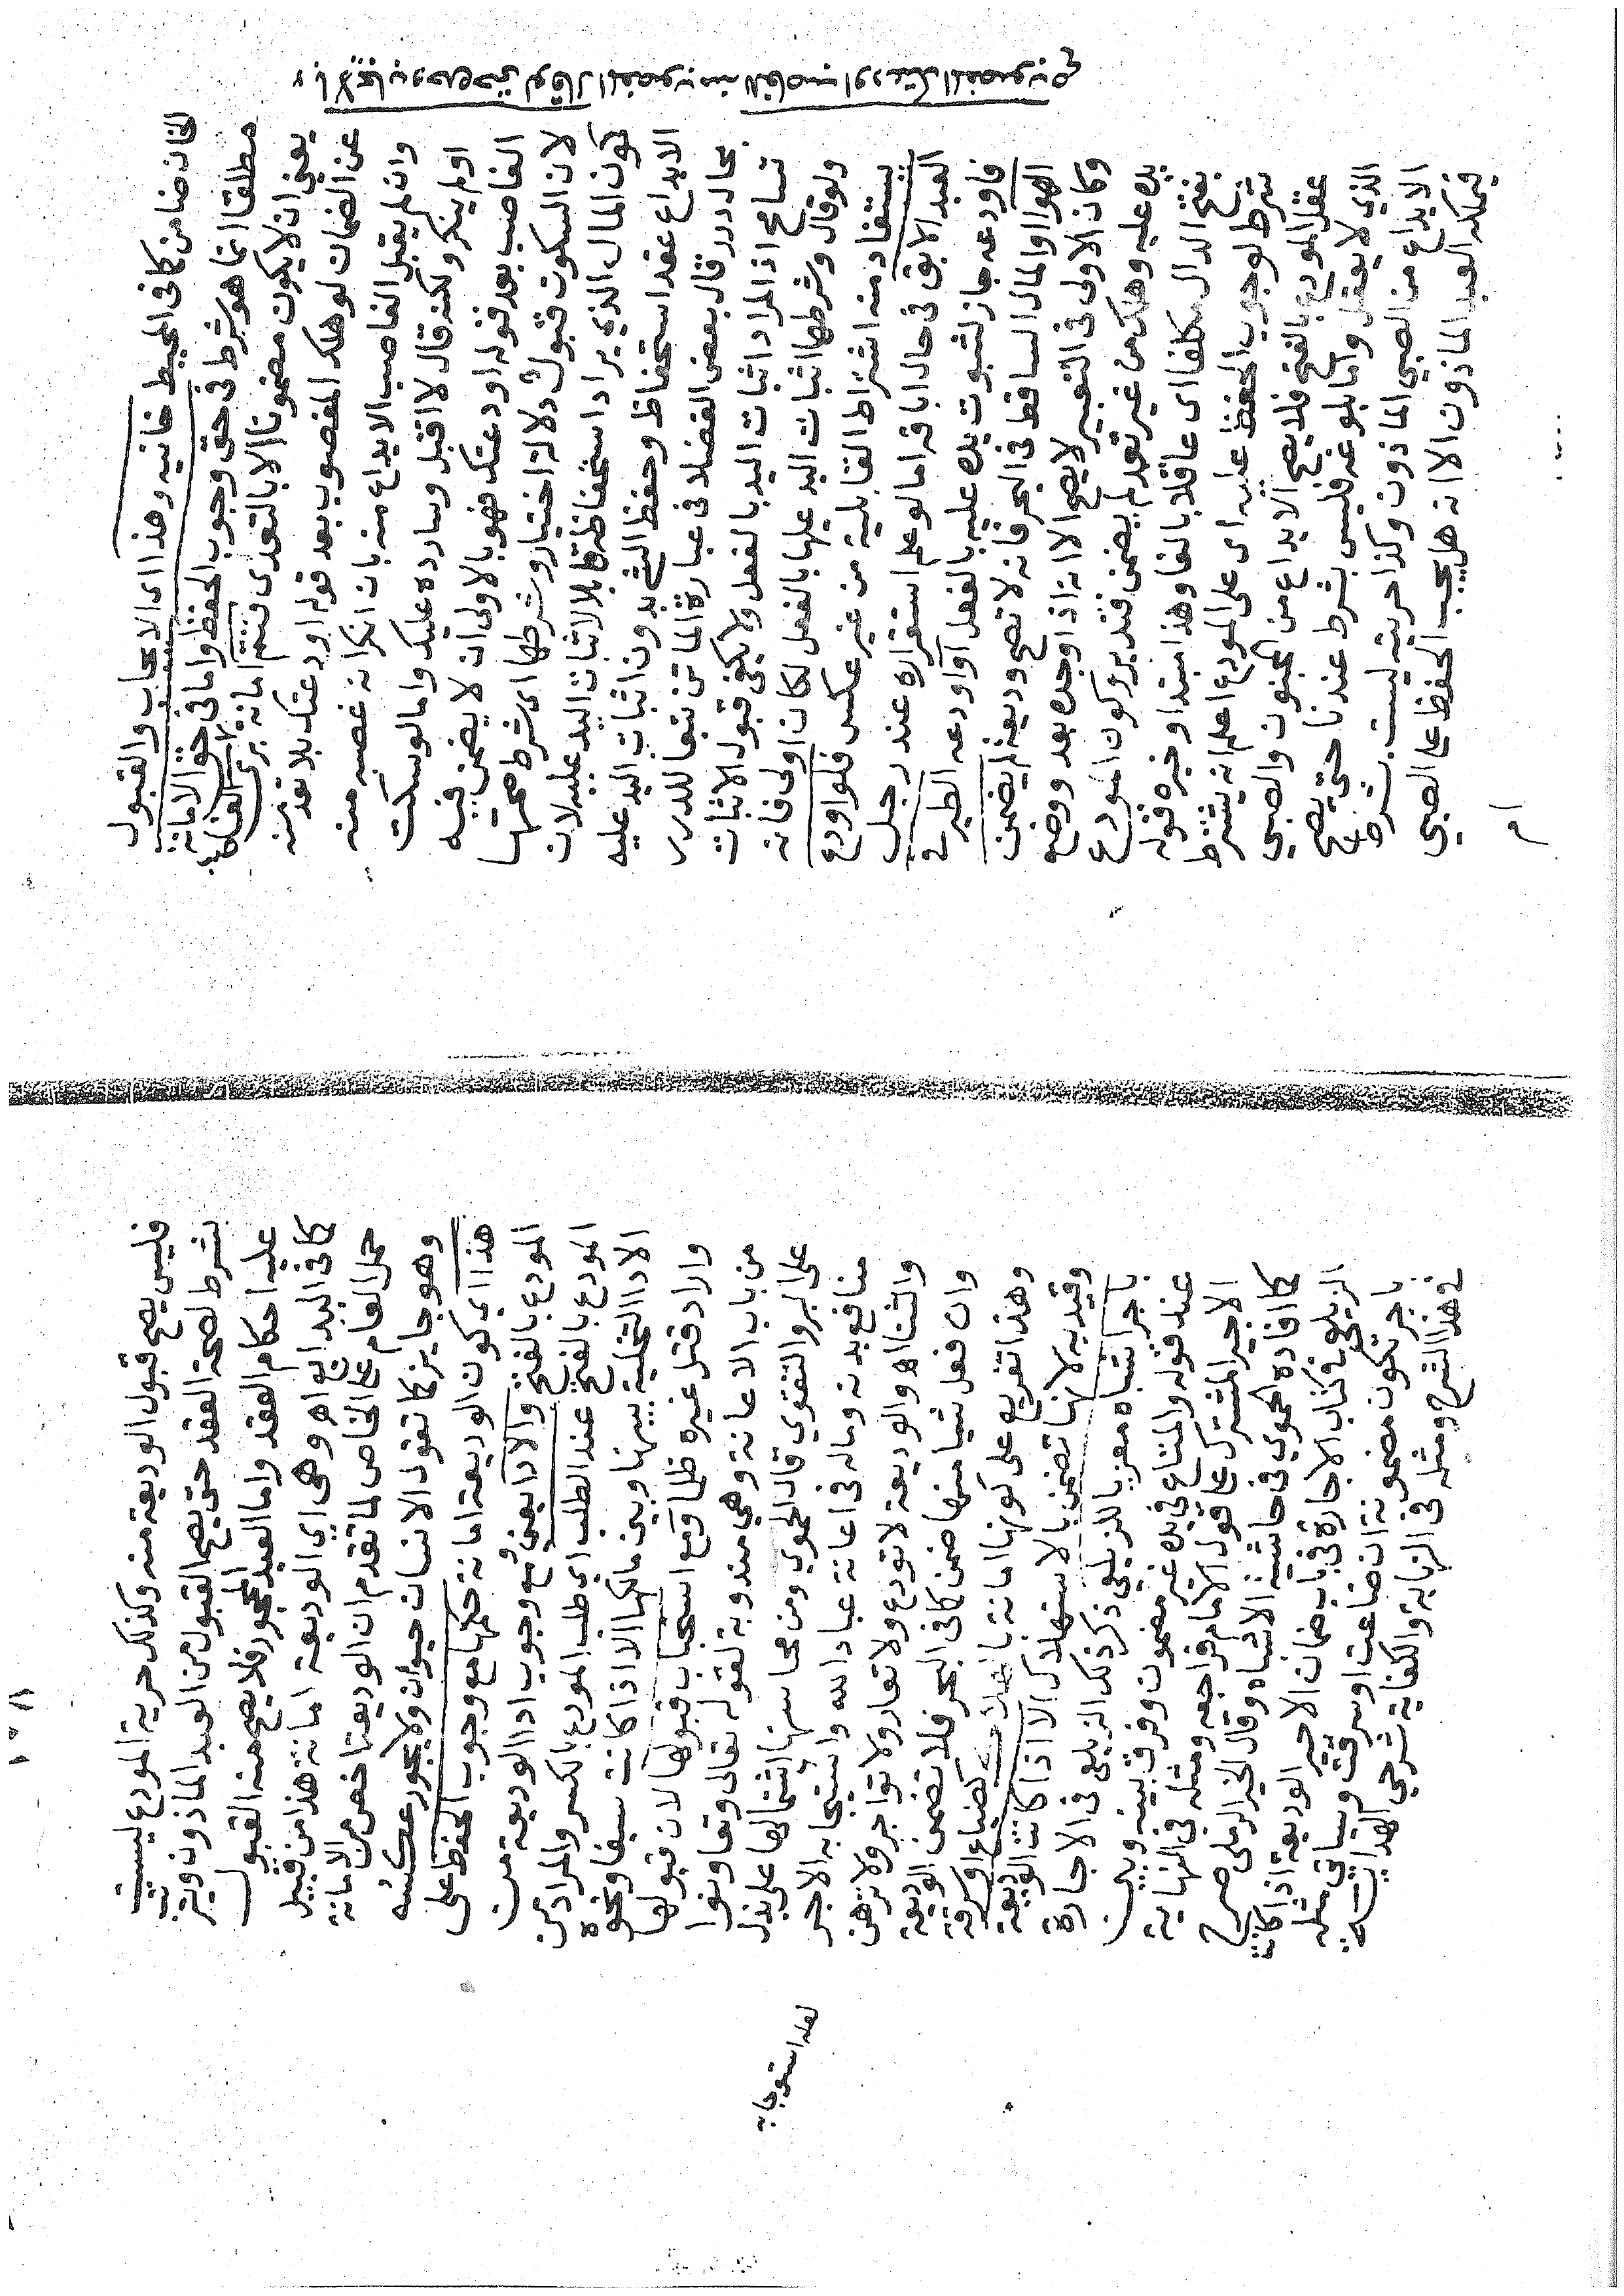 الخان ضامن كما فى المحيط خانيه وهذا اى الايجاب والقبول
مطلقا انما هو شرط فى حق وجوب الحفظ واما فى حق الامانة
فتتم امانة برئ الغاصب
يعنى ان لا يكون مضمونا الا بالتعدى
عن الضمان لو هلك المغصوب بعد قوله اودعتك بلا تعد منه
وان لم يقبل الغاصب الايداع منه بان انكر انه غصبه منه
او لم ينكر ولكنه قال لا اقبل وسارده عليك واما لو سكت
الغاصب بعد قوله اودعتك فهو بالاولى ان لا يضمن فيه
لان السكوت قبول دلالة اختيار وشرطها اى شرط صحتها
كون المال الذي يراد استحفاظه قابلا لاثبات اليد عليه لان
الايداع عقد استحفاظ وحفظ الشئ بدون اثبات اليد عليه
محال درر قال بعض الفضلا فى عبارة الماتن تبعا للدرر
تسامح اذ المراد اثبات اليد بالفعل ولا يكفى قبول الاثبات
ولو قال وشرطها اثبات اليد عليها بالفعل لكان اولى فانه
يستفاد منه اشتراط القابلية من غير عكس فلو اودع
العبد الابق فى حال اباقه اما لو علم استقراره عند رجل
فاودعه جاز لثبوت يده عليه بالفعل او اودعه الطير فى
الهوا او المال الساقط فى البحر فانه لا تصح وديعة لم يضمن
وكان الاولى فى التعبير لا يصح الا انه اذا وجده بعد ووضع
يده عليه وهلك من غير تعد لم يضمن فتدبر وكون المودع
بفتح الدال مكلفا اى عاقلا بالغا وهذا مبتدا وخبره قوله
شرط لوجوب الحفظ عليه اى على المودع اعلم انه يشترط
عقل المودع بالفتح فلا يصح الايداع من المجنون والصبي
الذي لا يعقل واما بلوغه فليس بشرط عندنا حتى يصح
الايداع من الصبي الماذون وكذا حريته ليست بشرط
فيملكه العبد الماذون الا انه هل يجب الحفظ على الصبي
ام
فليس يصح قبول الوديعة منه وكذلك حرية المودع ليست
بشرط لصحة العقد حتى يصح القبول من العبد الماذون ويترتب
عليه احكام العقد واما العبد المحجور فلا يصح منه القبول
كما فى البدايع اهـ وهى اي الوديعة امانة هذا من قبيل
حمل العام على الخاص لما تقدم ان الوديعة اخص من الامانة
وهو جايز كما تقول الانسان حيوان ولا يجوز عكسه
هذا اي كون الوديعة امانة حكمها مع وجوب الحفظ على
المودع بالفتح والادا يعنى مع وجوب ادا الوديعة من
المودع بالفتح عند الطلب اي طلب المودع بالكسر والمراد من
الادا التخلية بينها وبين مالكها الا اذا كانت سيفا ونحوه
واراد قتل غيره ظلما ومع استحباب قبولها لان قبولها
من باب الاعانة وهى مندوبة لقوله تعالى وتعاونوا
على البر والتقوي قال الحموي ومن محاسنها اشتمالها على بذل
منافع بدنه وماله فى اعانة عباد الله واستيجابه الاجر
والثنا اهـ والوديعة لا تودع ولا تعار ولا تواجر ولا ترهن
وان فعل شيا منها ضمن كما فى البحر فلا تضمن الوديعة
وهذا تفريع على كونها امانة كضياع او سرقة
وقيد به لانها تضمن بالاستهلاك الا اذا كانت الوديعة
باجر اشباه معزيا للزيلعي ذكر ذلك الزيلعى فى الاجارة
عند قوله والمتاع فى يده غير مضمون وفرق بينه وبين
الاجير المشترك على قول الامام فراجعه ومثله فى النهاية
كما افاده الحموي فى حاشية الاشباه وقال الخير الرملى صرح
الزيلعي فى كتاب الاجارة فى باب ضمان الاجير الوديعة اذا كانت
باجر تكون مضمونة ان ضاعت او سرقت وسياتى مثله
فى هذا الشرح ومثله فى النهاية والكفاية شرحي الهداية
لعله استيجابه